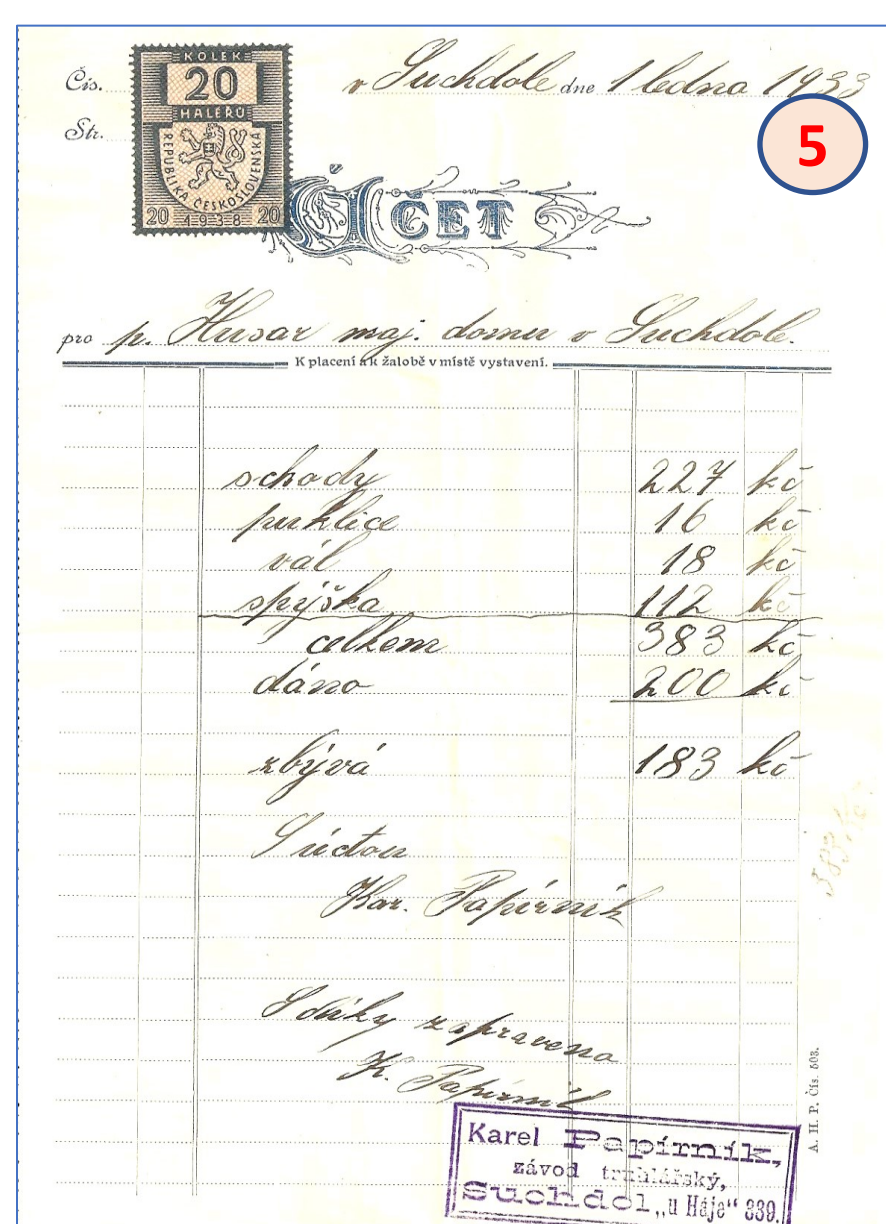 Čís.
v Suchdole dne 1 ledna 1933
Str.
KOLEK
20
HALÉŘŮ
REPUBLIKA ČESKOSLOVENSKÁ
20 1938 20
5
ÚČET
pro p. Husar maj. domu v Suchdole.
K placení a k žalobě v místě vystavení.
schody 227 kč
puklice 16 kč
vál 18 kč
spýška 112 kč
celkem 383 kč
dáno 200 kč
zbývá 183 kč
S úctou
Kar. Papírník
S díky zapraveno
K. Papírník
A. H. P. Čís. 503.
Karel Papírník,
závod truhlářský,
Suchdol „u Háje" 339.